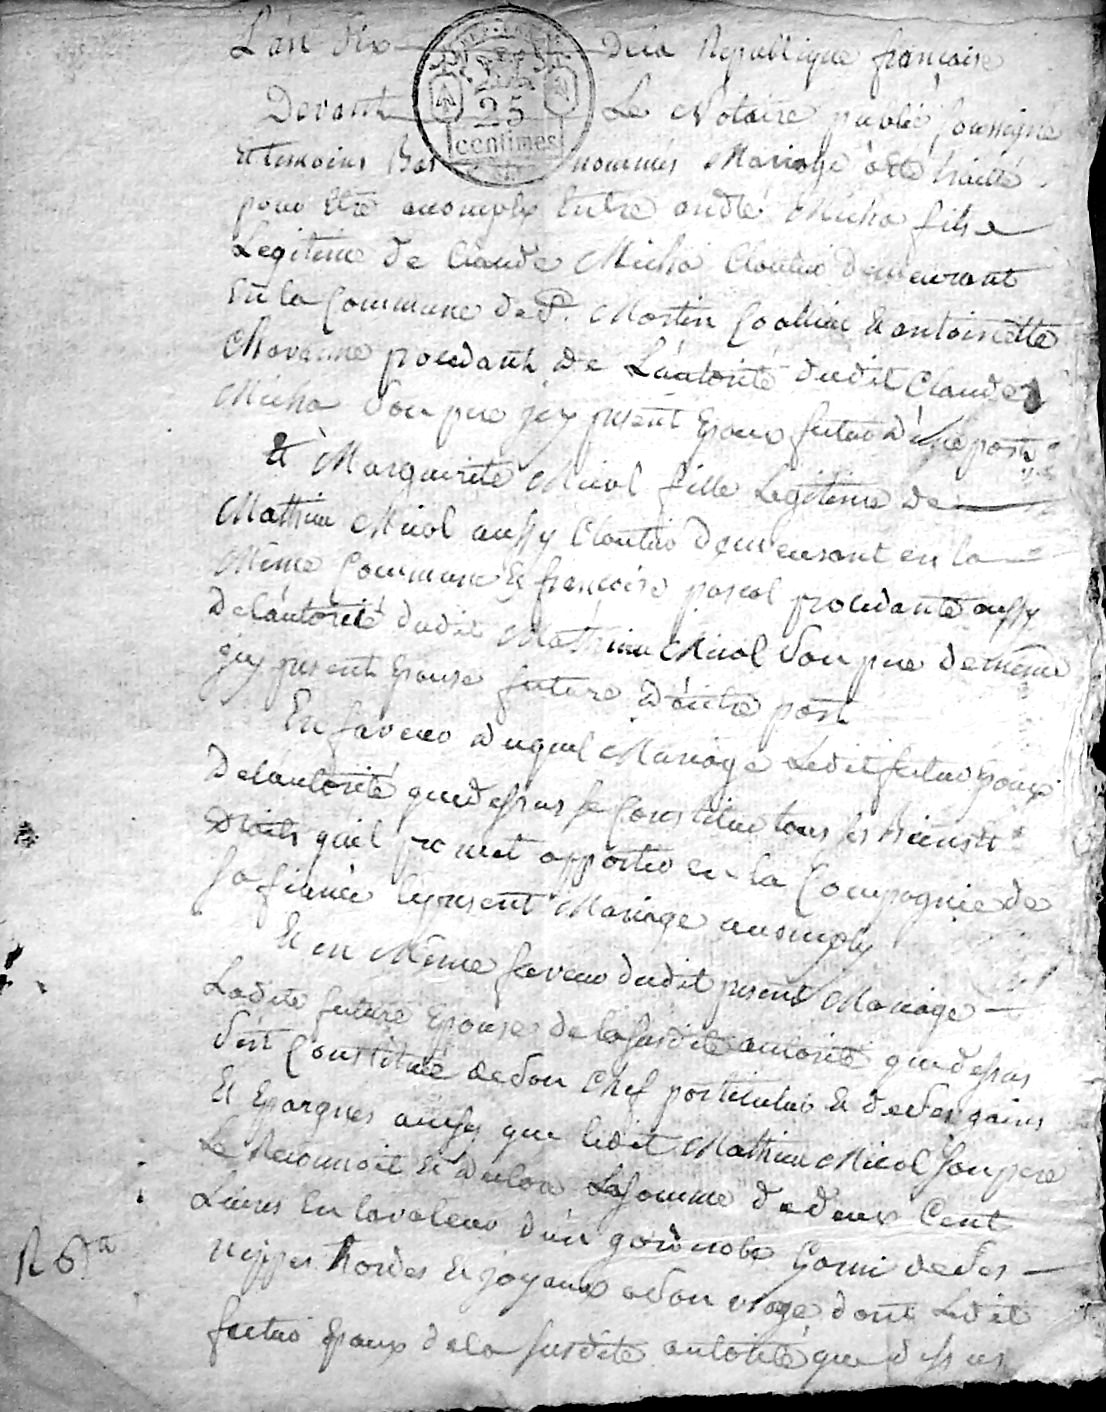 L'an dix de la Republique françoise
25
centimes
Devant Le Notaire public soussigné
Et temoins Bas nommés Mariage a été traitté
pour Etre accomply Entre andré Micha fils
Legitime de Claude Micha Cloutier demeurant
En la Commune de St. Martin Coalieu & antoinette
Chavanne procedant de L'autorité dudit Claude
Micha Son pere jcy present Epoux futur d'une part
Et Marguerite Micol fille Legitime de
Mathieu Micol aussy Cloutier demeurant en la
Même Commune & françoise pascal procedante aussy
de l'autorité dudit Mathieu Micol Son pere de même
jcy present Epouse future D'autre part
En faveur duquel Mariage Ledit futur Epoux
De l'autorité que dessus se Constitue tous ses Biens &
Droits qu'il promet apporter en la Compagnie de
sa fiancée le present Mariage accomply
Et en Même faveur dudit present Mariage
Ladite future Epouse de la susdite autorité que dessus
S'est Constitué de Son Chef particulier & de Ses gains
Et Epargnes ainsy que ledit Mathieu Micol Son pere
Le Reconnoit Et Declare La Somme de deux Cent
Livres En la valeur d'un garderobe Garni de Ses
nippes hordes & joyaux a Son usage dont Ledit
futur Epoux de la susdite autorité que dessus